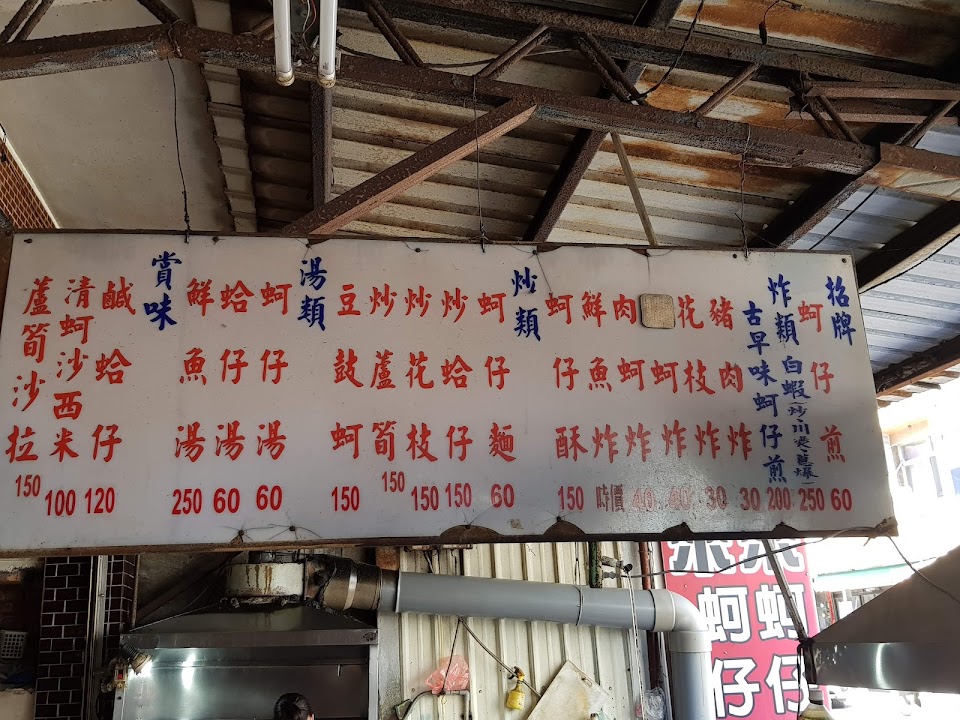 招牌
蚵仔煎 60
炸類
白蝦(炒、川燙、蔥爆) 250
古早味蚵仔煎 200
豬肉炸 30
花枝炸 30
蚵炸 40
肉蚵炸 40
鮮魚炸 時價
蚵仔酥 150
炒類
蚵仔麵 60
炒蛤仔 150
炒花枝 150
炒蘆筍 150
豆鼓蚵 150
湯類
蚵仔湯 60
蛤仔湯 60
鮮魚湯 250
賞味
鹹蛤仔 120
清蚵沙西米 100
蘆筍沙拉 150
蚵仔
蚵仔